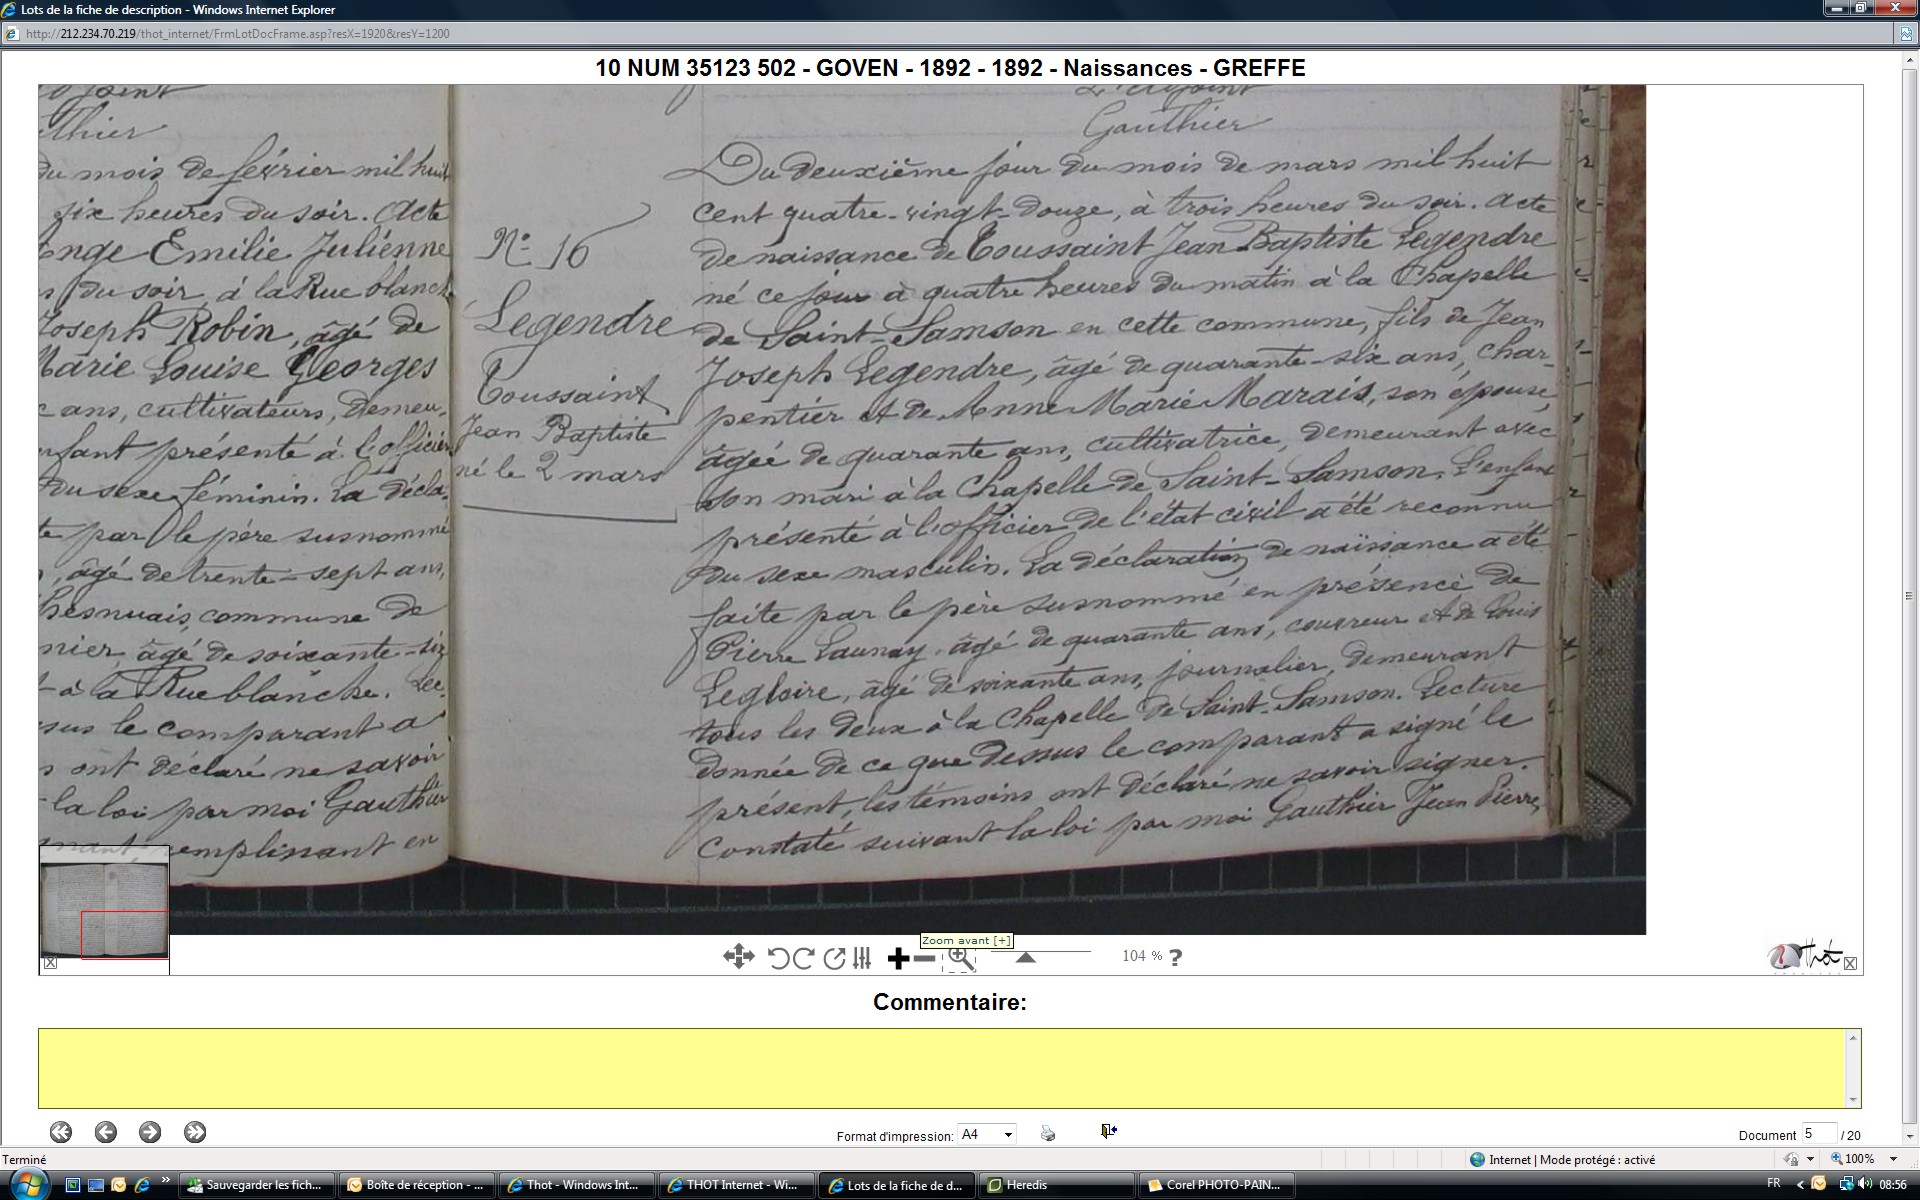 Lots de la fiche de description - Windows Internet Explorer
http://212.234.70.219/thot_internet/FrmLotDocFrame.asp?resX=1920&resY=1200
10 NUM 35123 502 - GOVEN - 1892 - 1892 - Naissances - GREFFE
du mois de février mil huit
six heures du soir. Acte
ange Emilie Julienne
du soir, à la Rue blanch
Joseph Robin, âgé de
Marie Louise Georges
ans, cultivateurs, demeu-
enfant présenté à l'officier
du sexe féminin. La décla-
te par le père susnommé
, âgé de trente-sept ans,
hesnuais, commune de
nier, âgé de soixante-six
à la Rue blanche. Lec-
sus le comparant a
ont déclaré ne savoir
la loi par moi Gauthier
remplissant en
N° 16
Legendre
Toussaint
Jean Baptiste
né le 2 mars
L'adjoint
Gauthier
Du deuxième jour du mois de mars mil huit
cent quatre-vingt-douze, à trois heures du soir. Acte
de naissance de Toussaint Jean Baptiste Legendre
né ce jour à quatre heures du matin à la Chapelle
de Saint-Samson en cette commune, fils de Jean
Joseph Legendre, âgé de quarante-six ans, char-
pentier et de Anne Marie Marais, son épouse,
âgée de quarante ans, cultivatrice, demeurant avec
son mari à la Chapelle de Saint-Samson. L'enfant
présenté à l'officier de l'état civil a été reconnu
du sexe masculin. La déclaration de naissance a été
faite par le père susnommé en présence de
Pierre Launay, âgé de quarante ans, couvreur et de Louis
Legloire, âgé de soixante ans, journalier, demeurant
tous les deux à la Chapelle de Saint-Samson. Lecture
donnée de ce que dessus le comparant a signé le
présent, les témoins ont déclaré ne savoir signer.
Constaté suivant la loi par moi Gauthier Jean Pierre,
Zoom avant [+]
104 % ?
Thot
Commentaire:
Format d'impression: A4
Document 5 / 20
Terminé
Internet | Mode protégé : activé
100%
Sauvegarder les fich...
Boîte de réception - ...
Thot - Windows Int...
THOT Internet - Wi...
Lots de la fiche de d...
Heredis
Corel PHOTO-PAIN...
FR
08:56